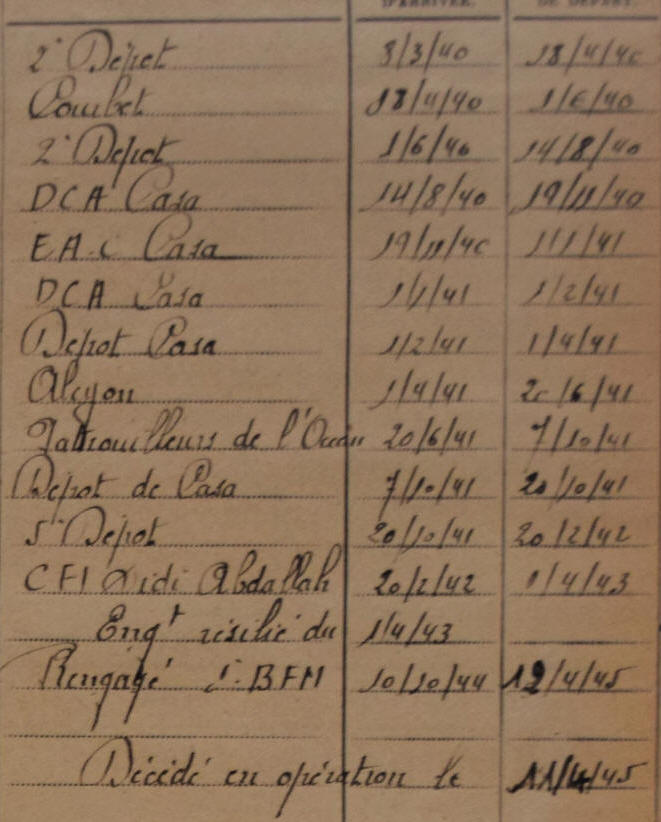 D'ARRIVÉE. DE DÉPART.
2° Dépot 8/3/40 18/4/40
Coubet 18/4/40 1/6/40
2° Dépot 1/6/40 14/8/40
DCA Casa 14/8/40 19/11/40
EA.C Casa 19/11/40 1/1/41
DCA Casa 1/1/41 1/2/41
Dépot Casa 1/2/41 1/4/41
Alcyon 1/4/41 20/6/41
Patrouilleurs de l'Océan 20/6/41 7/10/41
Dépot de Casa 7/10/41 20/10/41
5° Dépot 20/10/41 20/2/42
CFI Sidi Abdallah 20/2/42 1/4/43
Engt résilié du 1/4/43
Rengagé 1° BFM 10/10/44 12/4/45
Décédé en opération le 11/4/45